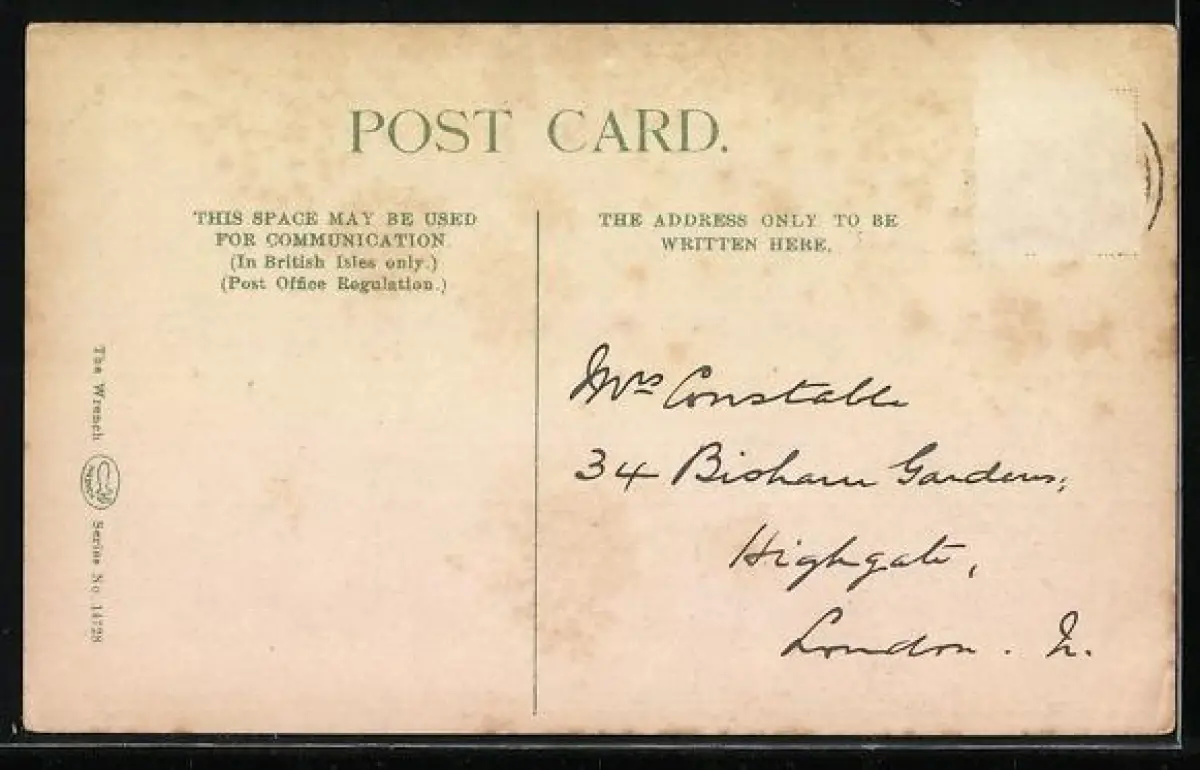 POST CARD.
THIS SPACE MAY BE USED
FOR COMMUNICATION
(In British Isles only.)
(Post Office Regulation.)
THE ADDRESS ONLY TO BE
WRITTEN HERE.
Mrs Constable
34 Bisham Gardens,
Highgate,
London. N.
The Wrench Series No 14728